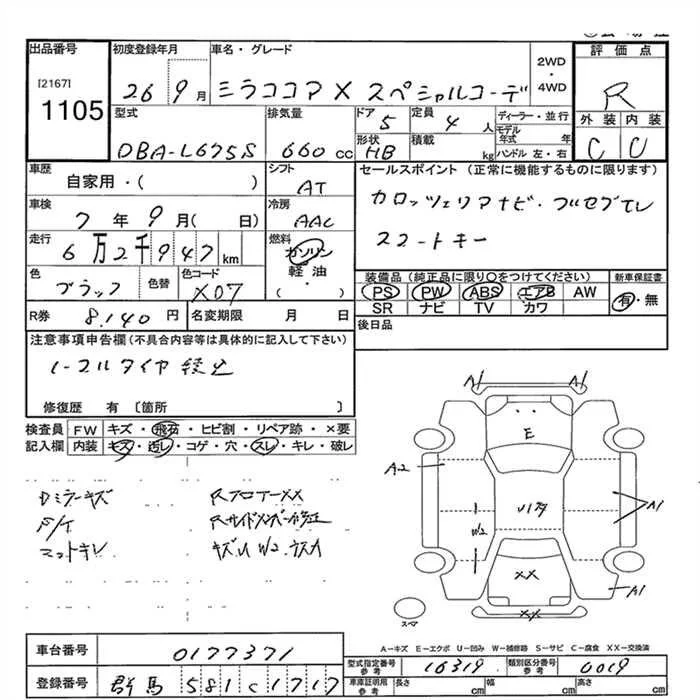 出品番号
[2167]
1105
初度登録年月
26 9月
車名・グレード
ミラココア X スペシャルコーデ
2WD
・
4WD
評価点
R
外装 内装
C C
型式
DBA-L675S
排気量
660 cc
ドア
5
形状
HB
定員
4 人
積載
kg
ディーラー・並行
モデル年式 年
ハンドル 左・右
車歴
自家用・( )
車検
7 年 9 月( 日)
走行
6万2千947 km
色
ブラック
色替
色コード
X07
シフト
AT
冷房
AAC
燃料
ガソリン
軽・油
( )
セールスポイント (正常に機能するものに限ります)
カロッツェリアナビ・フルセグTV
スマートキー
装備品(純正品に限り○をつけてください)
PS PW ABS エアB AW
SR ナビ TV カワ
新車保証書
有・無
R券 8,140 円
名変期限 月 日
後日品
注意事項申告欄(不具合内容等は具体的に記入して下さい)
ノーマルタイヤ積込
修復歴 有 〔箇所 〕
検査員記入欄
FW キズ・飛石・ヒビ割・リペア跡・×要
内装 キズ・汚レ・コゲ・穴・スレ・キレ・破レ
Dミラーキズ
F/T
マットキレ
RフロアーXX
Rサイドメンバー修正
キズU W2 有
A1 A1
E
A2
A1
W2
XX
A1
XX
スペア
A―キズ E―エクボ U―凹み W―補修跡 S―サビ C―腐食 XX―交換済
車台番号 0177371
登録番号 群馬 581 c 1717
型式指定番号 参考 16319
類別区分番号 参考 0019
車庫証明用 参考 長さ cm 幅 cm 高さ cm